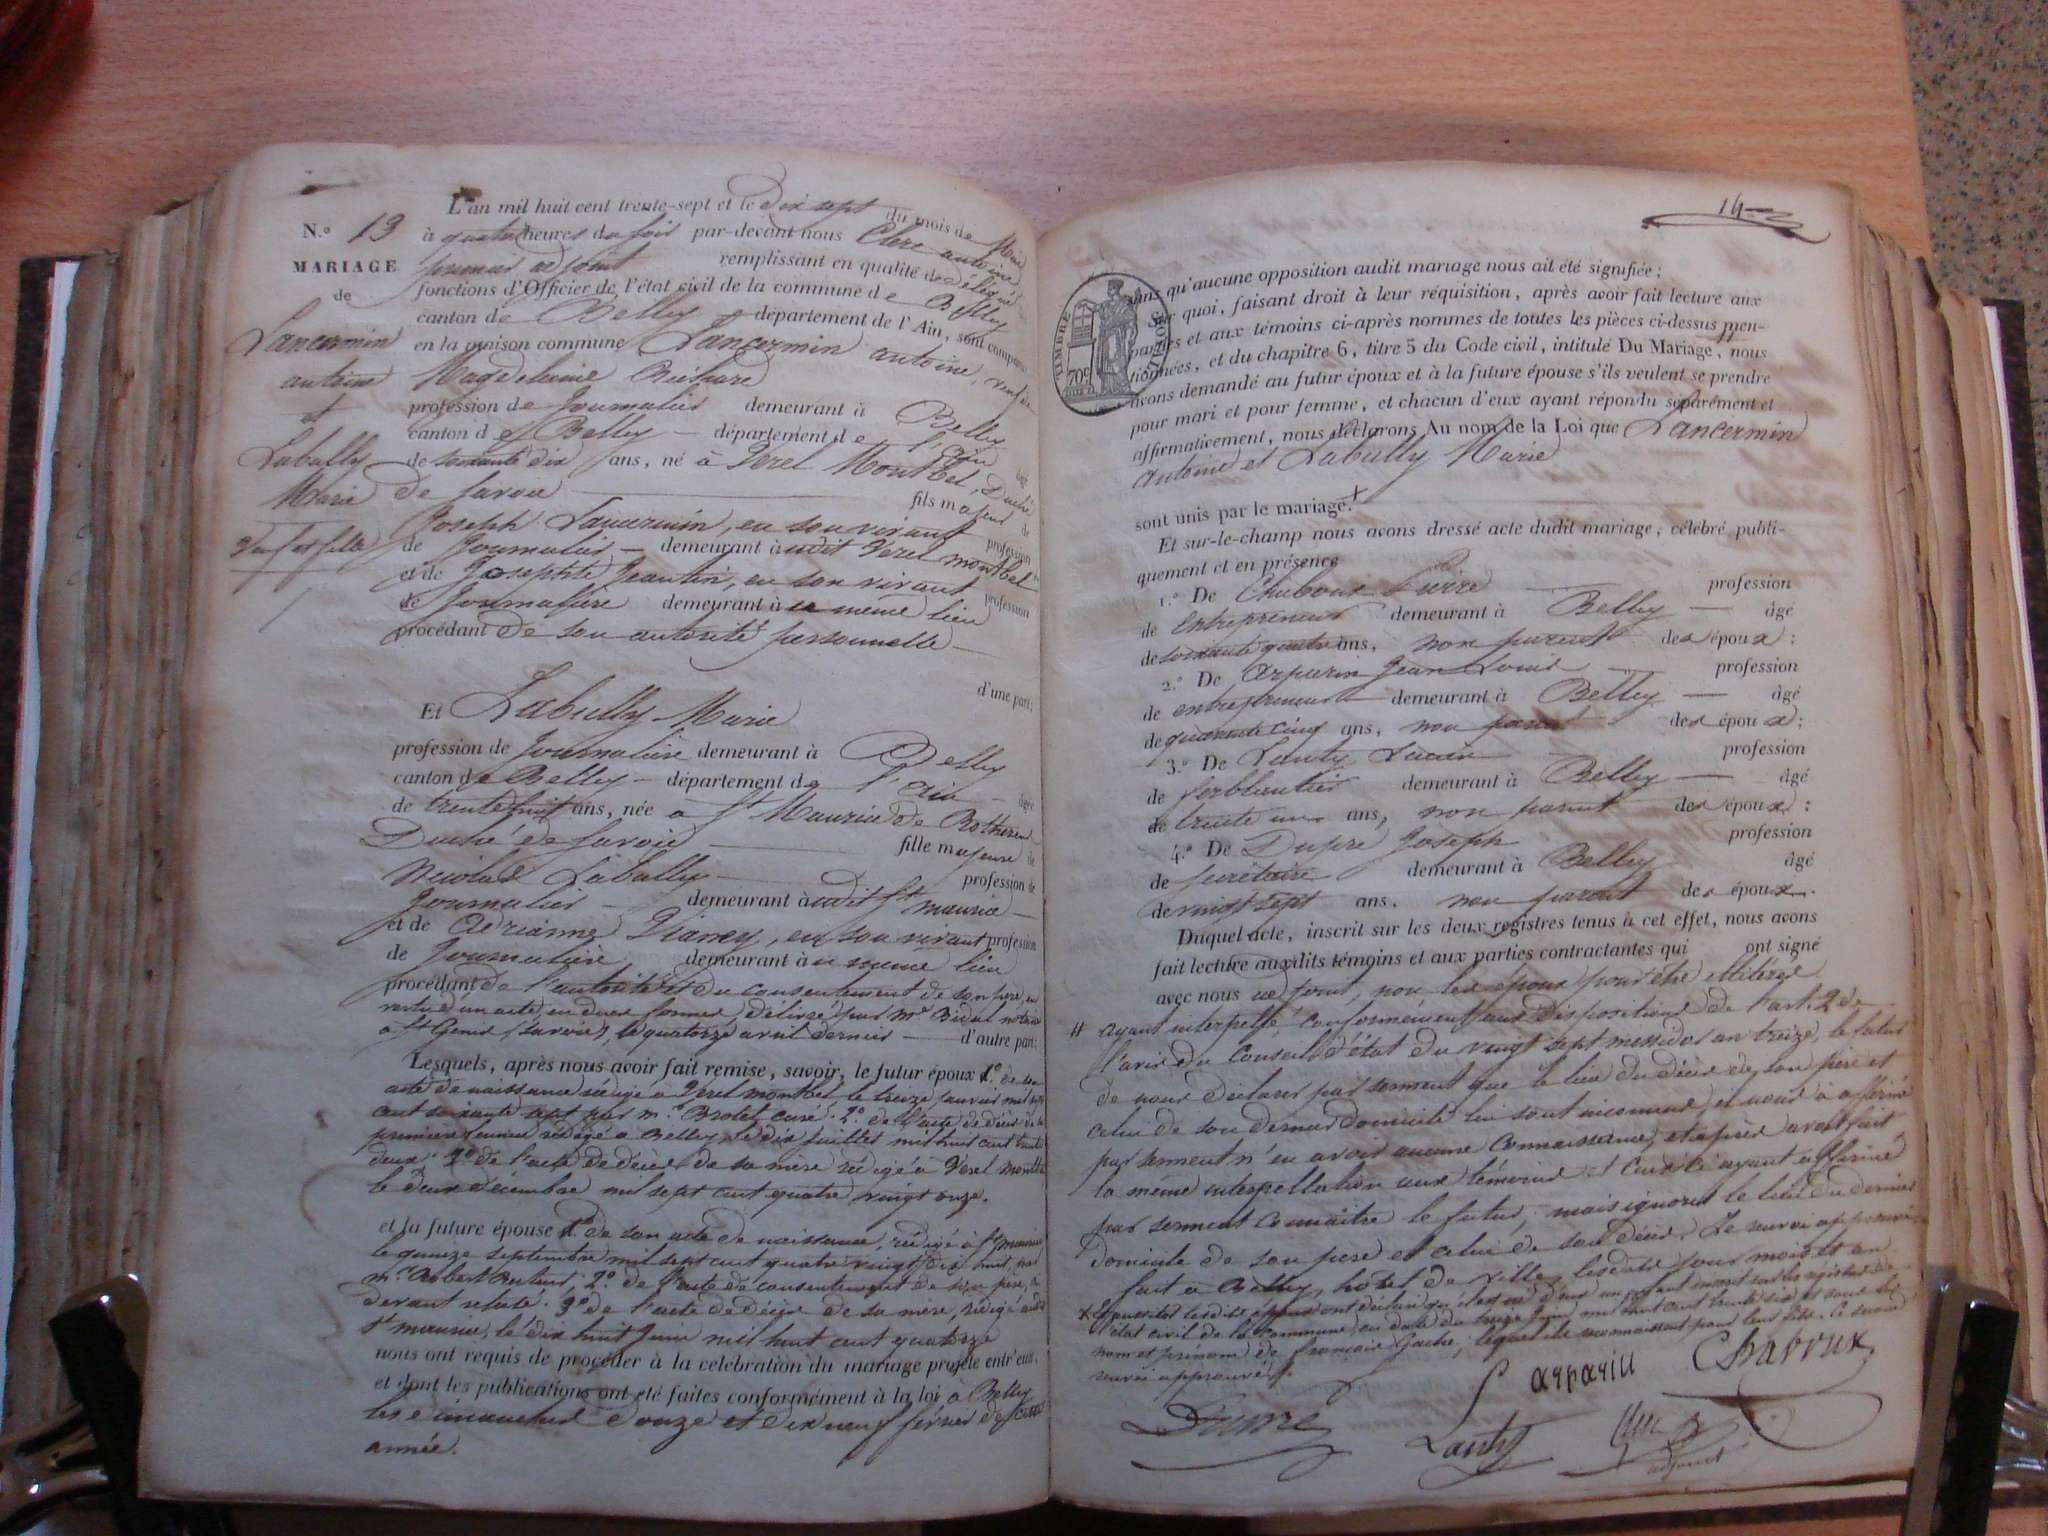 N.º 13
MARIAGE
de
Lancermin
antoine
et
Labully
Marie
Veuf et fille
L'an mil huit cent trente-sept et le dix sept du mois de Mai
à quatre heures du soir par-devant nous Clerc antoine
premier adjoint remplissant en qualité de délégué
fonctions d'Officier de l'état civil de la commune de Belley
canton de Belley département de l'Ain, sont comparus
en la maison commune Lancermin antoine, veuf de
Magdeleine
profession de Journalier demeurant à Belley
canton de Belley — département de l'ain âgé
de soixante dix ans, né à Verel Montbel, Duché
de Savoie fils majeur de
Joseph Lancermin, en son vivant profession
de Journalier — demeurant audit Verel montbel
et de Josephte Jeantin, en son vivant profession
de Journalière demeurant à ce même lieu
procédant de son autorité personnelle —
d'une part;
Et Labully Marie
profession de Journalière demeurant à Belley
canton de Belley — département de l'ain âgée
de trente huit ans, née à St Maurice de Rotheren
Duché de Savoie fille majeure de
Nicolas Labully — profession de
Journalier — demeurant audit St maurice —
et de Adrianne Dianey, en son vivant profession
de Journalière demeurant à ce meme lieu
procédant de l'autorité et du consentement de son père, en
vertu d'un acte, en due forme, délivré par Me Bidal notaire
à St Genix (Savoie), le quatorze avril dernier — d'autre part;
Lesquels, après nous avoir fait remise, savoir, le futur époux 1º de son
acte de naissance rédigé à Verel montbel le treize janvier mil sept
cent soixante sept par m.r Brolet curé. 2º de l'acte de décès de la
première femme rédigé à Belley, le dix juillet mil huit cent trente
deux. 3º de l'acte de décès de sa mère rédigé à Verel montbel
le deux decembre mil sept cent quatre vingt onze.
et la future épouse 1º de son acte de naissance, rédigé à St maurice
le quinze septembre mil sept cent quatre vingt dix huit, par
m.r Robert recteur; 2º de l'acte de consentement de son père, ci
devant relaté. 3º de l'acte de décès de sa mère, rédigé audit
St maurice, le dix huit Juin mil huit cent quatorze
nous ont requis de procéder à la célébration du mariage projeté entr'eux,
et dont les publications ont été faites conformément à la loi à Belley
les dimanches douze et dix neuf février de cette
année.
14
TIMBRE ROYAL
70c
sans qu'aucune opposition audit mariage nous ait été signifiée;
Sur quoi, faisant droit à leur réquisition, après avoir fait lecture aux
parties et aux témoins ci-après nommés de toutes les pièces ci-dessus men-
tionnées, et du chapitre 6, titre 5 du Code civil, intitulé Du Mariage, nous
avons demandé au futur époux et à la future épouse s'ils veulent se prendre
pour mari et pour femme, et chacun d'eux ayant répondu séparément et
affirmativement, nous déclarons Au nom de la Loi que Lancermin
Antoine et Labully Marie
sont unis par le mariage. x
Et sur-le-champ nous avons dressé acte dudit mariage, célébré publi-
quement et en présence
1.º De Chaboux profession
de Entrepreneur demeurant à Belley — âgé
de soixante quatre ans, non parent des époux;
2.º De Arparin Jean Louis — profession
de entrepreneur — demeurant à Belley — âgé
de quarante cinq ans, non parent des époux;
3.º De Lanty Lucien profession
de ferblantier demeurant à Belley — âgé
de trente un ans, non parent des époux;
4.º De Dupré Joseph profession
de secrétaire demeurant à Belley âgé
de vingt sept ans. non parent des époux.
Duquel acte, inscrit sur les deux registres tenus à cet effet, nous avons
fait lecture auxdits témoins et aux parties contractantes qui ont signé
avec nous non les époux pour être illitérés
# ayant interpellé conformément aux dispositions de l'art. 2 de
l'avis du Conseil d'état du vingt sept messidor an treize, le futur
de nous déclarer par serment que le lieu du décès de son père et
celui de son dernier domicile lui sont inconnus, et nous a affirmé
par serment n'en avoir aucune connaissance, et après avoir fait
la même interpellation aux témoins et ceux ci ayant affirmé
par serment connaitre le futur, mais ignorer le lieu du dernier
domicile de son père et celui de son décès. Le renvoi approuvé.
fait à Belley, hôtel de ville, les dits jour mois et an
x Et aussitôt lesdits époux ont déclaré qu'il est né d'eux un enfant inscrit sur les registres de
l'état civil de la commune, en date du treize juin mil huit cent trente six et sous les
nom et prénom de françois Gache, lequel ils reconnaissent pour leur fils. Ce second
renvoi approuvé.
arparin
Chaboux
Dupré
Lanty
Clerc
adjoint